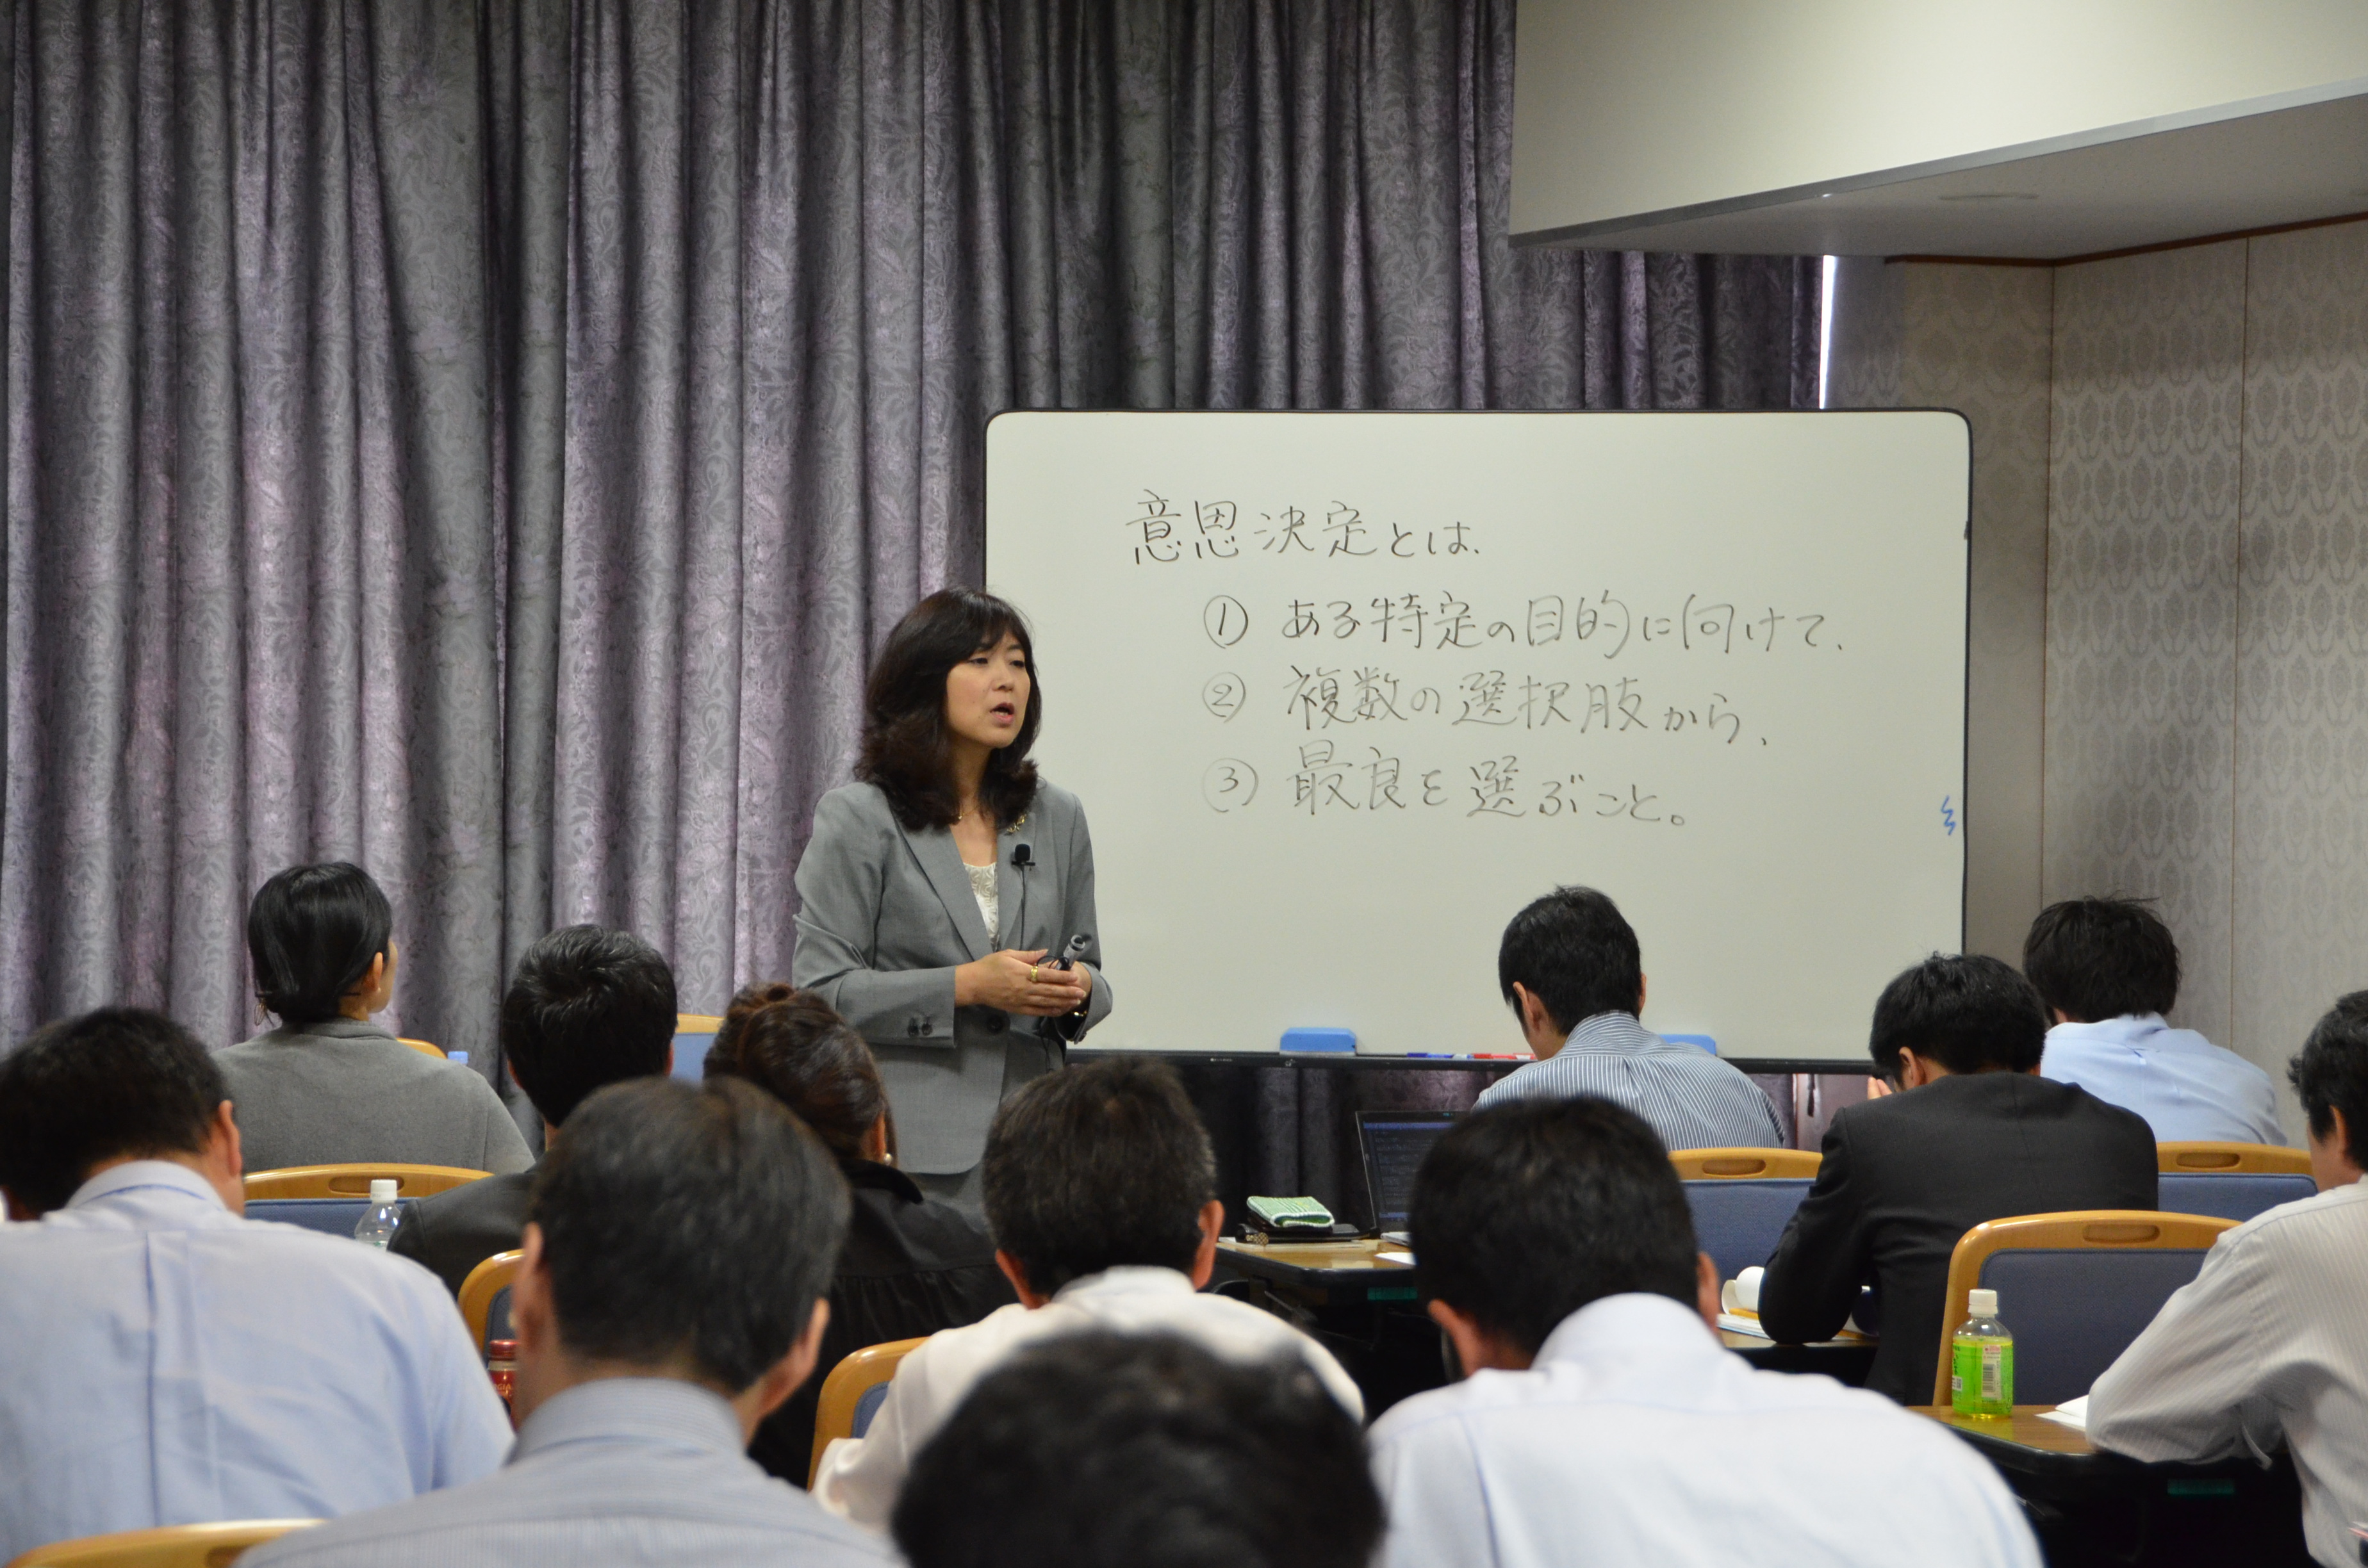 意思決定とは、
① ある特定の目的に向けて、
② 複数の選択肢から、
③ 最良を選ぶこと。